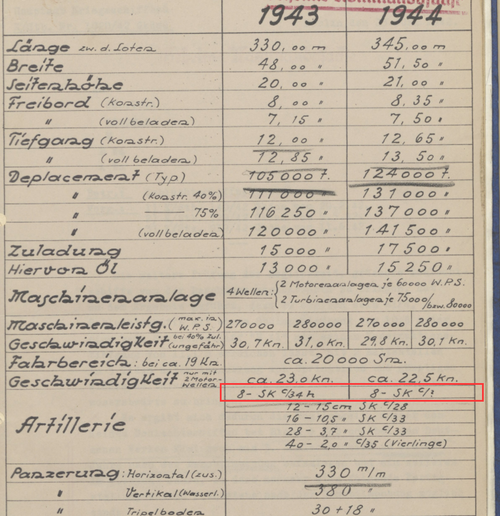 1943 1944
Länge zw. d. Loten 330,00 m 345,00 m
Breite 48,00 " 51,50 "
Seitenhöhe 20,00 " 21,00 "
Freibord (Konstr.) 8,00 " 8,35 "
" (voll beladen) 7,15 " 7,50 "
Tiefgang (Konstr.) 12,00 " 12,65 "
" (voll beladen) 12,85 " 13,50 "
Deplacement (Typ) 105000 t. 124000 t.
" (Konstr. 40%) 111000 " 131000 "
" 75% 116250 " 137000 "
" (voll beladen) 120000 " 141500 "
Zuladung 15000 " 17500 "
Hiervon Öl 13000 " 15250 "
Maschinenanlage 4 Wellen: { 2 Motorenanlagen je 60000 W.P.S.
2 Turbinenanlagen je 75000/bzw. 80000
Maschinenleistg. (max. in W.P.S) 270000 280000 270000 280000
Geschwindigkeit (bei 40% Zul. ungefähr) 30,7 Kn. 31,0 Kn. 29,8 Kn. 30,1 Kn.
Fahrbereich: bei ca. 19 Kn. ca. 20000 Sm.
Geschwindigkeit nur mit 2 Motor-Wellen ca. 23,0 Kn. ca. 22,5 Kn.
8- SK C/34 h 8- SK C/?
Artillerie 12 - 15 cm SK C/28
16 - 10,5 " SK C/33
28 - 3,7 " SK C/33
40 - 2,0 " C/35 (Vierlinge)
Panzerung: Horizontal (zus.) 330 m/m
" Vertikal (Wasserl.) 380 "
" Torpedoboden 30 + 18 "